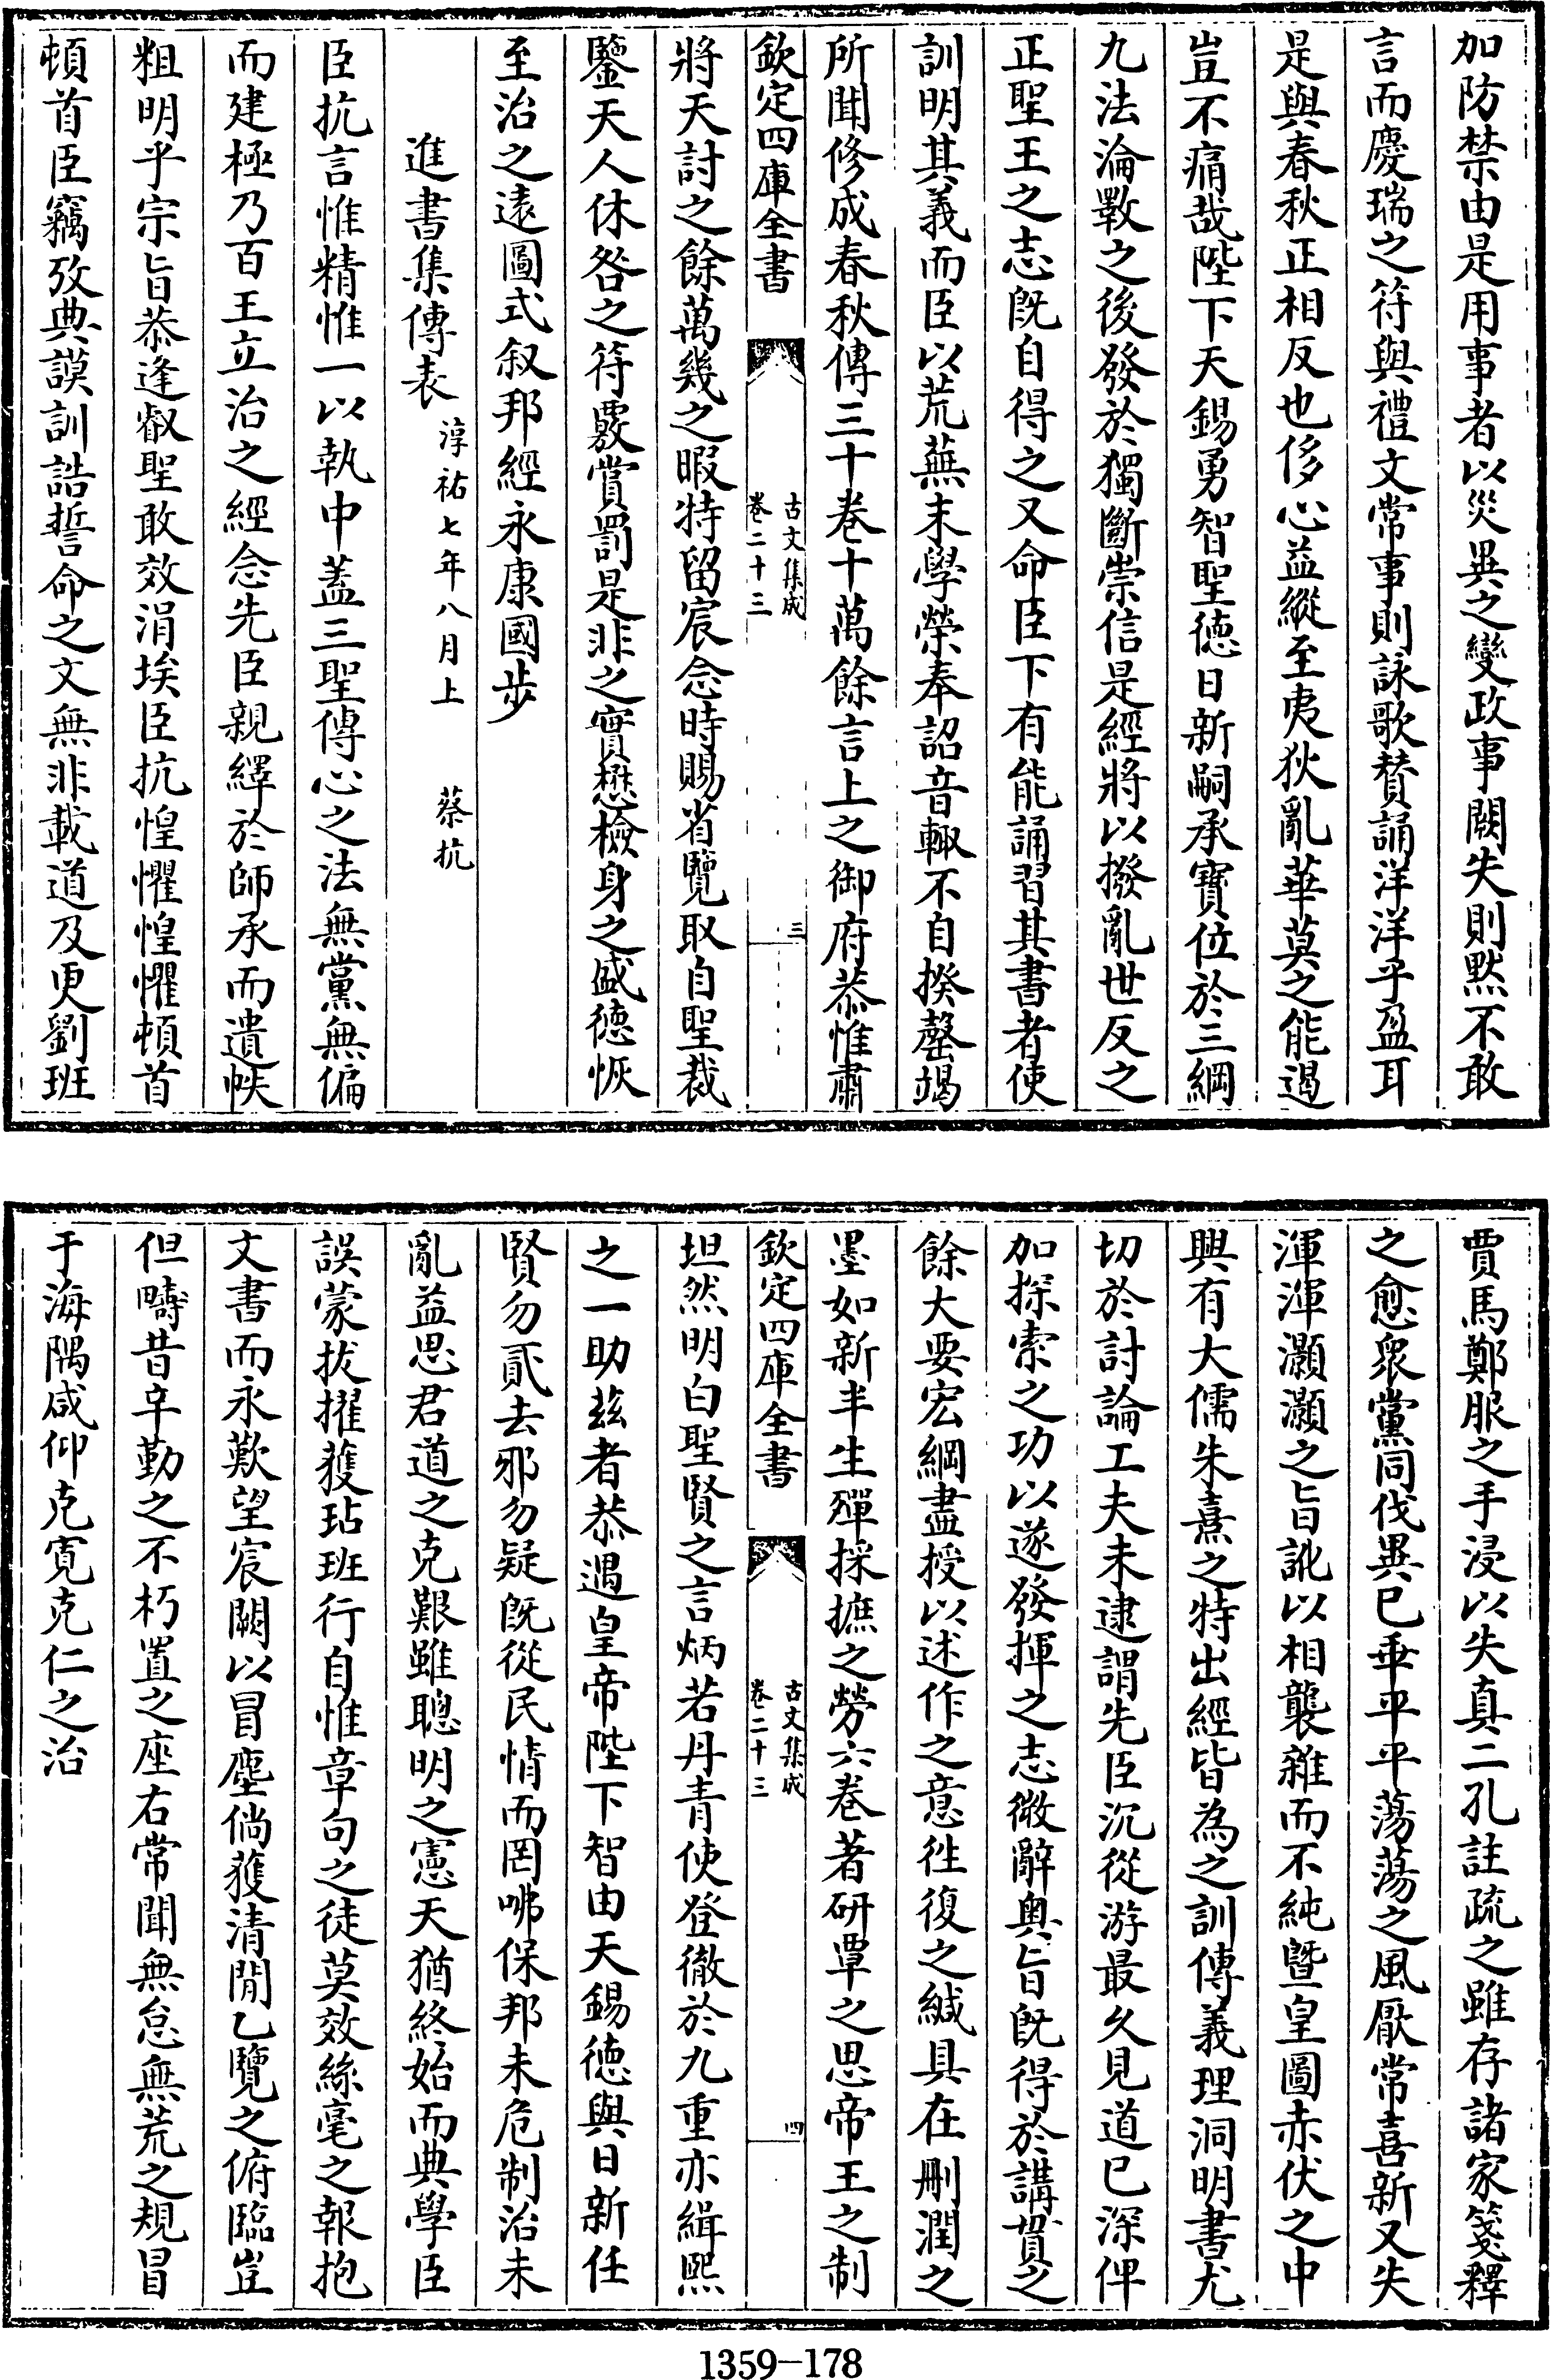 加防禁由是用事者以災異之變政事闕失則默不敢
言而慶瑞之符與禮文常事則詠歌賛誦洋洋乎盈耳
是與春秋正相反也侈心益縱至夷狄亂華莫之能遏
豈不痛哉陛下天錫勇智聖徳日新嗣承寳位於三綱
九法淪斁之後發於獨斷崇信是經將以撥亂世反之
正聖王之志旣自得之又命臣下有能誦習其書者使
訓明其義而臣以荒蕪末學榮奉詔音輙不自揆罄竭
所聞修成春秋傳三十卷十萬餘言上之御府恭惟肅
欽定四庫全書
古文集成
卷二十三
三
將天討之餘萬幾之暇特留宸念時賜省覽取自聖裁
鑒天人休咎之符覈賞罰是非之實懋檢身之盛徳恢
至治之逺圖式叙邦經永康國步
進書集傳表
淳祐七年八月上 蔡抗
臣抗言惟精惟一以執中蓋三聖傳心之法無黨無偏
而建極乃百王立治之經念先臣親繹於師承而遺帙
粗明乎宗旨恭逢叡聖敢效涓埃臣抗惶懼惶懼頓首
頓首臣竊攷典謨訓誥誓命之文無非載道及更劉班
賈馬鄭服之手浸以失真二孔註疏之雖存諸家箋釋
之愈衆黨同伐異已乖平平蕩蕩之風厭常喜新又失
渾渾灝灝之旨訛以相襲雜而不純暨皇圖赤伏之中
興有大儒朱熹之特出經皆為之訓傳義理洞明書尤
切於討論工夫未逮謂先臣沉從游最久見道已深俾
加探索之功以遂發揮之志微辭奥旨旣得於講貫之
餘大要宏綱盡授以述作之意徃復之緘具在刪潤之
墨如新半生殫採摭之勞六卷著研覃之思帝王之制
欽定四庫全書
古文集成
卷二十三
四
坦然明白聖賢之言炳若丹青使登徹於九重亦緝熙
之一助兹者恭遇皇帝陛下智由天錫徳與日新任
賢勿貳去邪勿疑旣從民情而罔咈保邦未危制治未
亂益思君道之克艱雖聰明之憲天猶終始而典學臣
誤蒙拔擢獲玷班行自惟章句之徒莫效絲毫之報抱
文書而永歎望宸闕以冒塵倘獲清閒乙覽之俯臨豈
但疇昔辛勤之不朽置之座右常聞無怠無荒之規冒
于海隅咸仰克寛克仁之治
1359—178